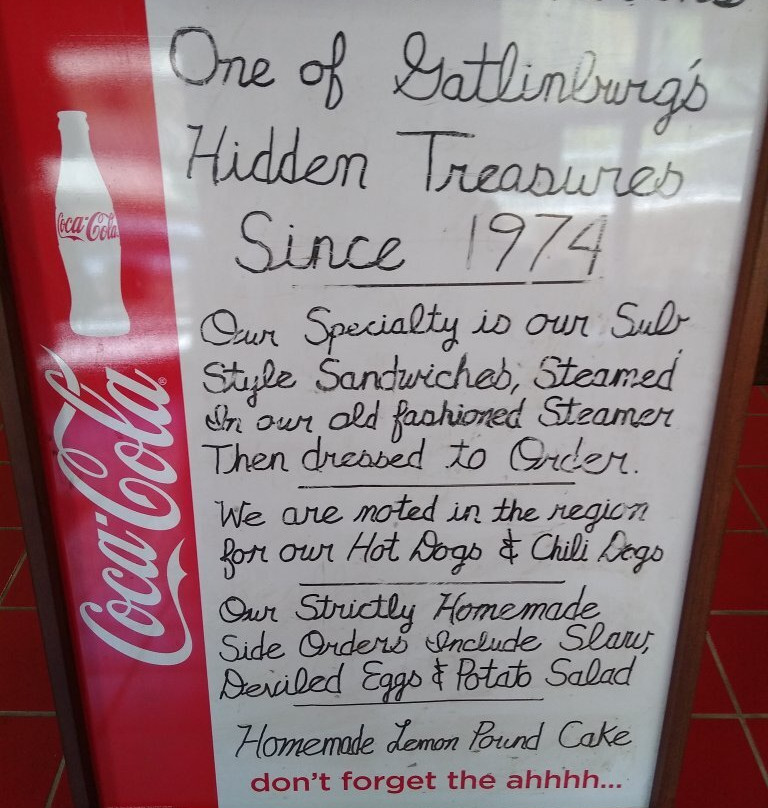 One of Gatlinburg's
Hidden Treasures
Since 1974
Our Specialty is our Sub
Style Sandwiches, Steamed
In our old fashioned Steamer
Then dressed to Order.
We are noted in the region
for our Hot Dogs & Chili Dogs
Our Strictly Homemade
Side Orders Include Slaw,
Deviled Eggs & Potato Salad
Homemade Lemon Pound Cake
don't forget the ahhhh...
Coca-Cola
Coca-Cola®